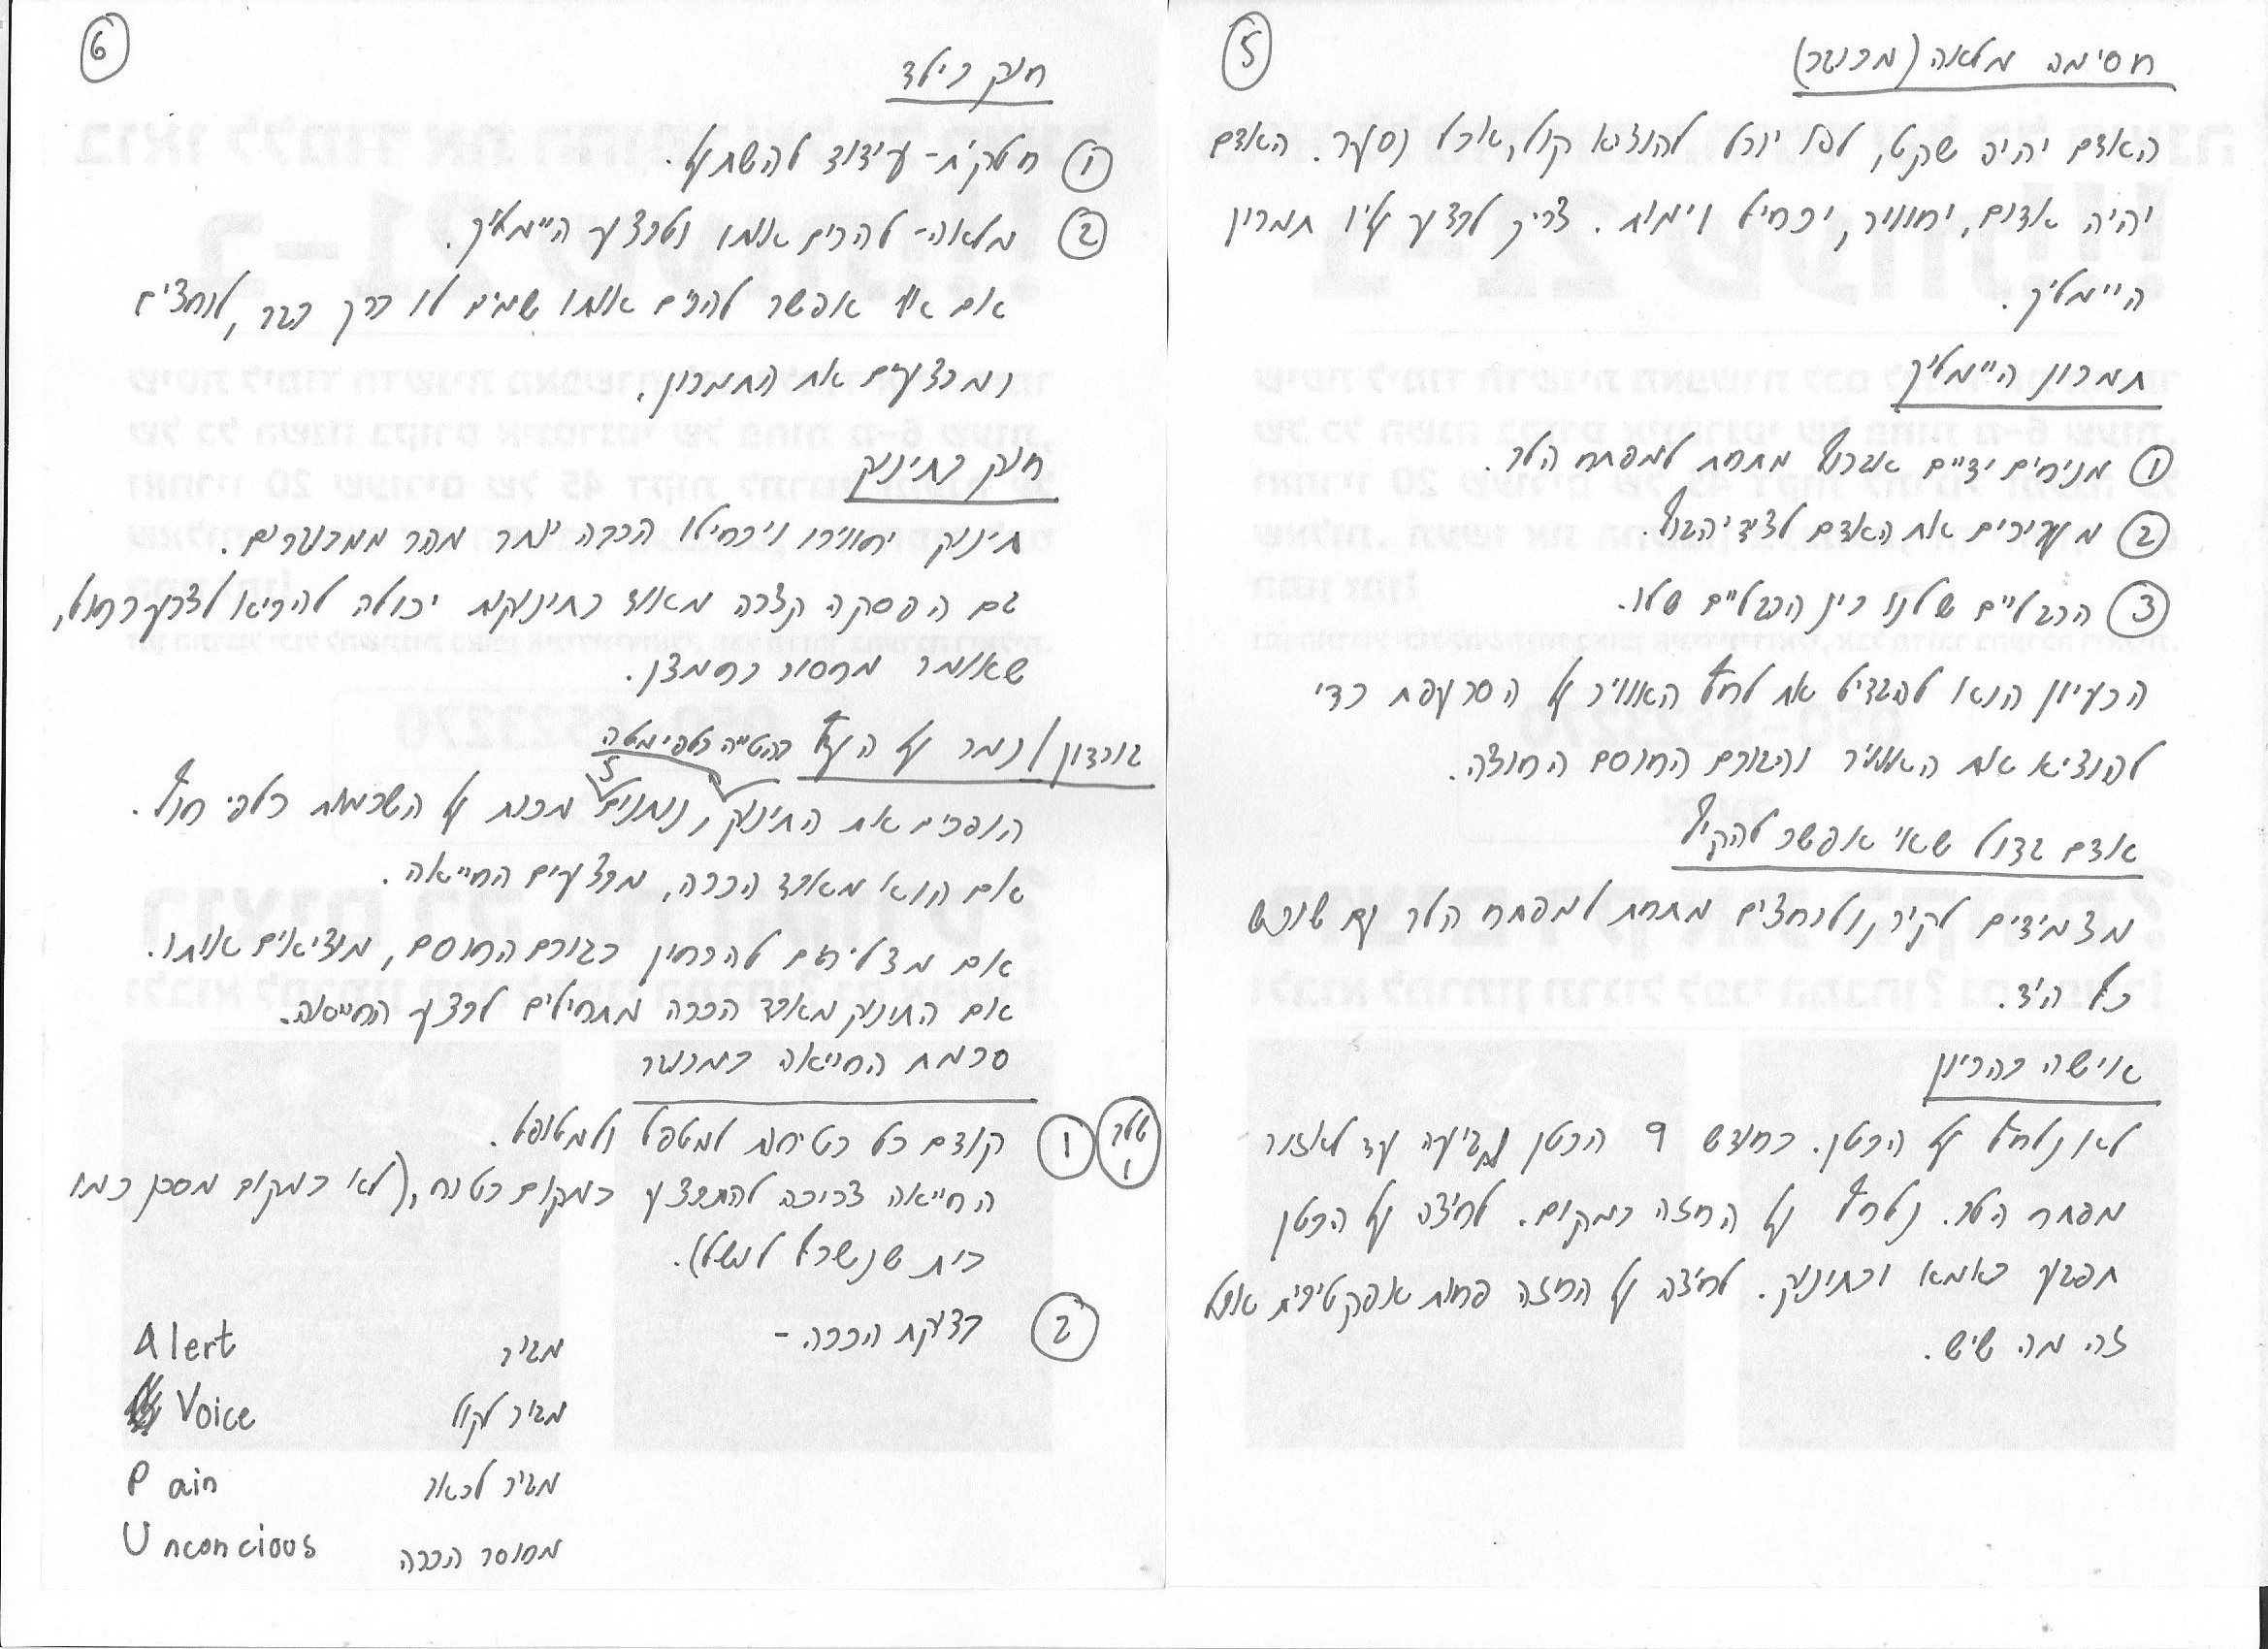 5
חסימה מלאה (מבוגר)
האדם יהיה שקט, לא יוכל להוציא קול, אבל נסער. האדם
יהיה אדום, יחוויר, יכחיל וימות. צריך לבצע עליו תמרון
היימליך.
תמרון היימליך
1 מניחים ידיים אגרוף מתחת למפתח הלב.
2 מעבירים את האדם לצידי הגוף.
3 הרגליים שלנו בין הרגליים שלו.
הרעיון הוא להגדיל את לחץ האוויר על הסרעפת כדי
להוציא את האוויר והגורם החוסם החוצה.
אדם גדול שאי אפשר להקיף
מצמידים לקיר, ולוחצים מתחת למפתח הלב עם שורש
כף היד.
אישה בהריון
לא נלחץ על הבטן. בחודש 9 הבטן מגיעה עד לאזור
מפתח הלב. נלחץ על החזה במקום. לחיצה על הבטן
תפגע באמא ובתינוק. לחיצה על החזה פחות אפקטיבית אבל
זה מה שיש.
6
חנק בילד
1 חלקית - עידוד להשתעל.
2 מלאה - להרים אותו ולבצע היימליך.
אם אי אפשר להרים אותו שמים לו ברך בגב, לוחצים
ומבצעים את התמרון.
חנק בתינוק
תינוק יחווירו ויכחילו הרבה יותר מהר ממבוגרים.
גם הפסקה קצרה מאוד בתינוקות יכולה להביא לצבע כחול,
שאומר מחסור בחמצן.
גורדון / נמר על העץ בהטייה כלפי מטה
הופכים את התינוק, נותנים 5 מכות על השכמות כלפי חוץ.
אם הוא מאבד הכרה, מבצעים החייאה.
אם מצליחים להבחין בגורם החוסם, מוציאים אותו.
אם התינוק מאבד הכרה מתחילים לבצע החייאה.
סכמת החייאה במבוגר
שלב 1
1 קודם כל בטיחות למטפל ולמטופל.
החייאה צריכה להתבצע במקום בטוח, (לא במקום מסוכן כמו
בית שנשרף למשל).
2 בדיקת הכרה -
Alert מגיב
Voice מגיב לקול
Pain מגיב לכאב
Unconcious מחוסר הכרה